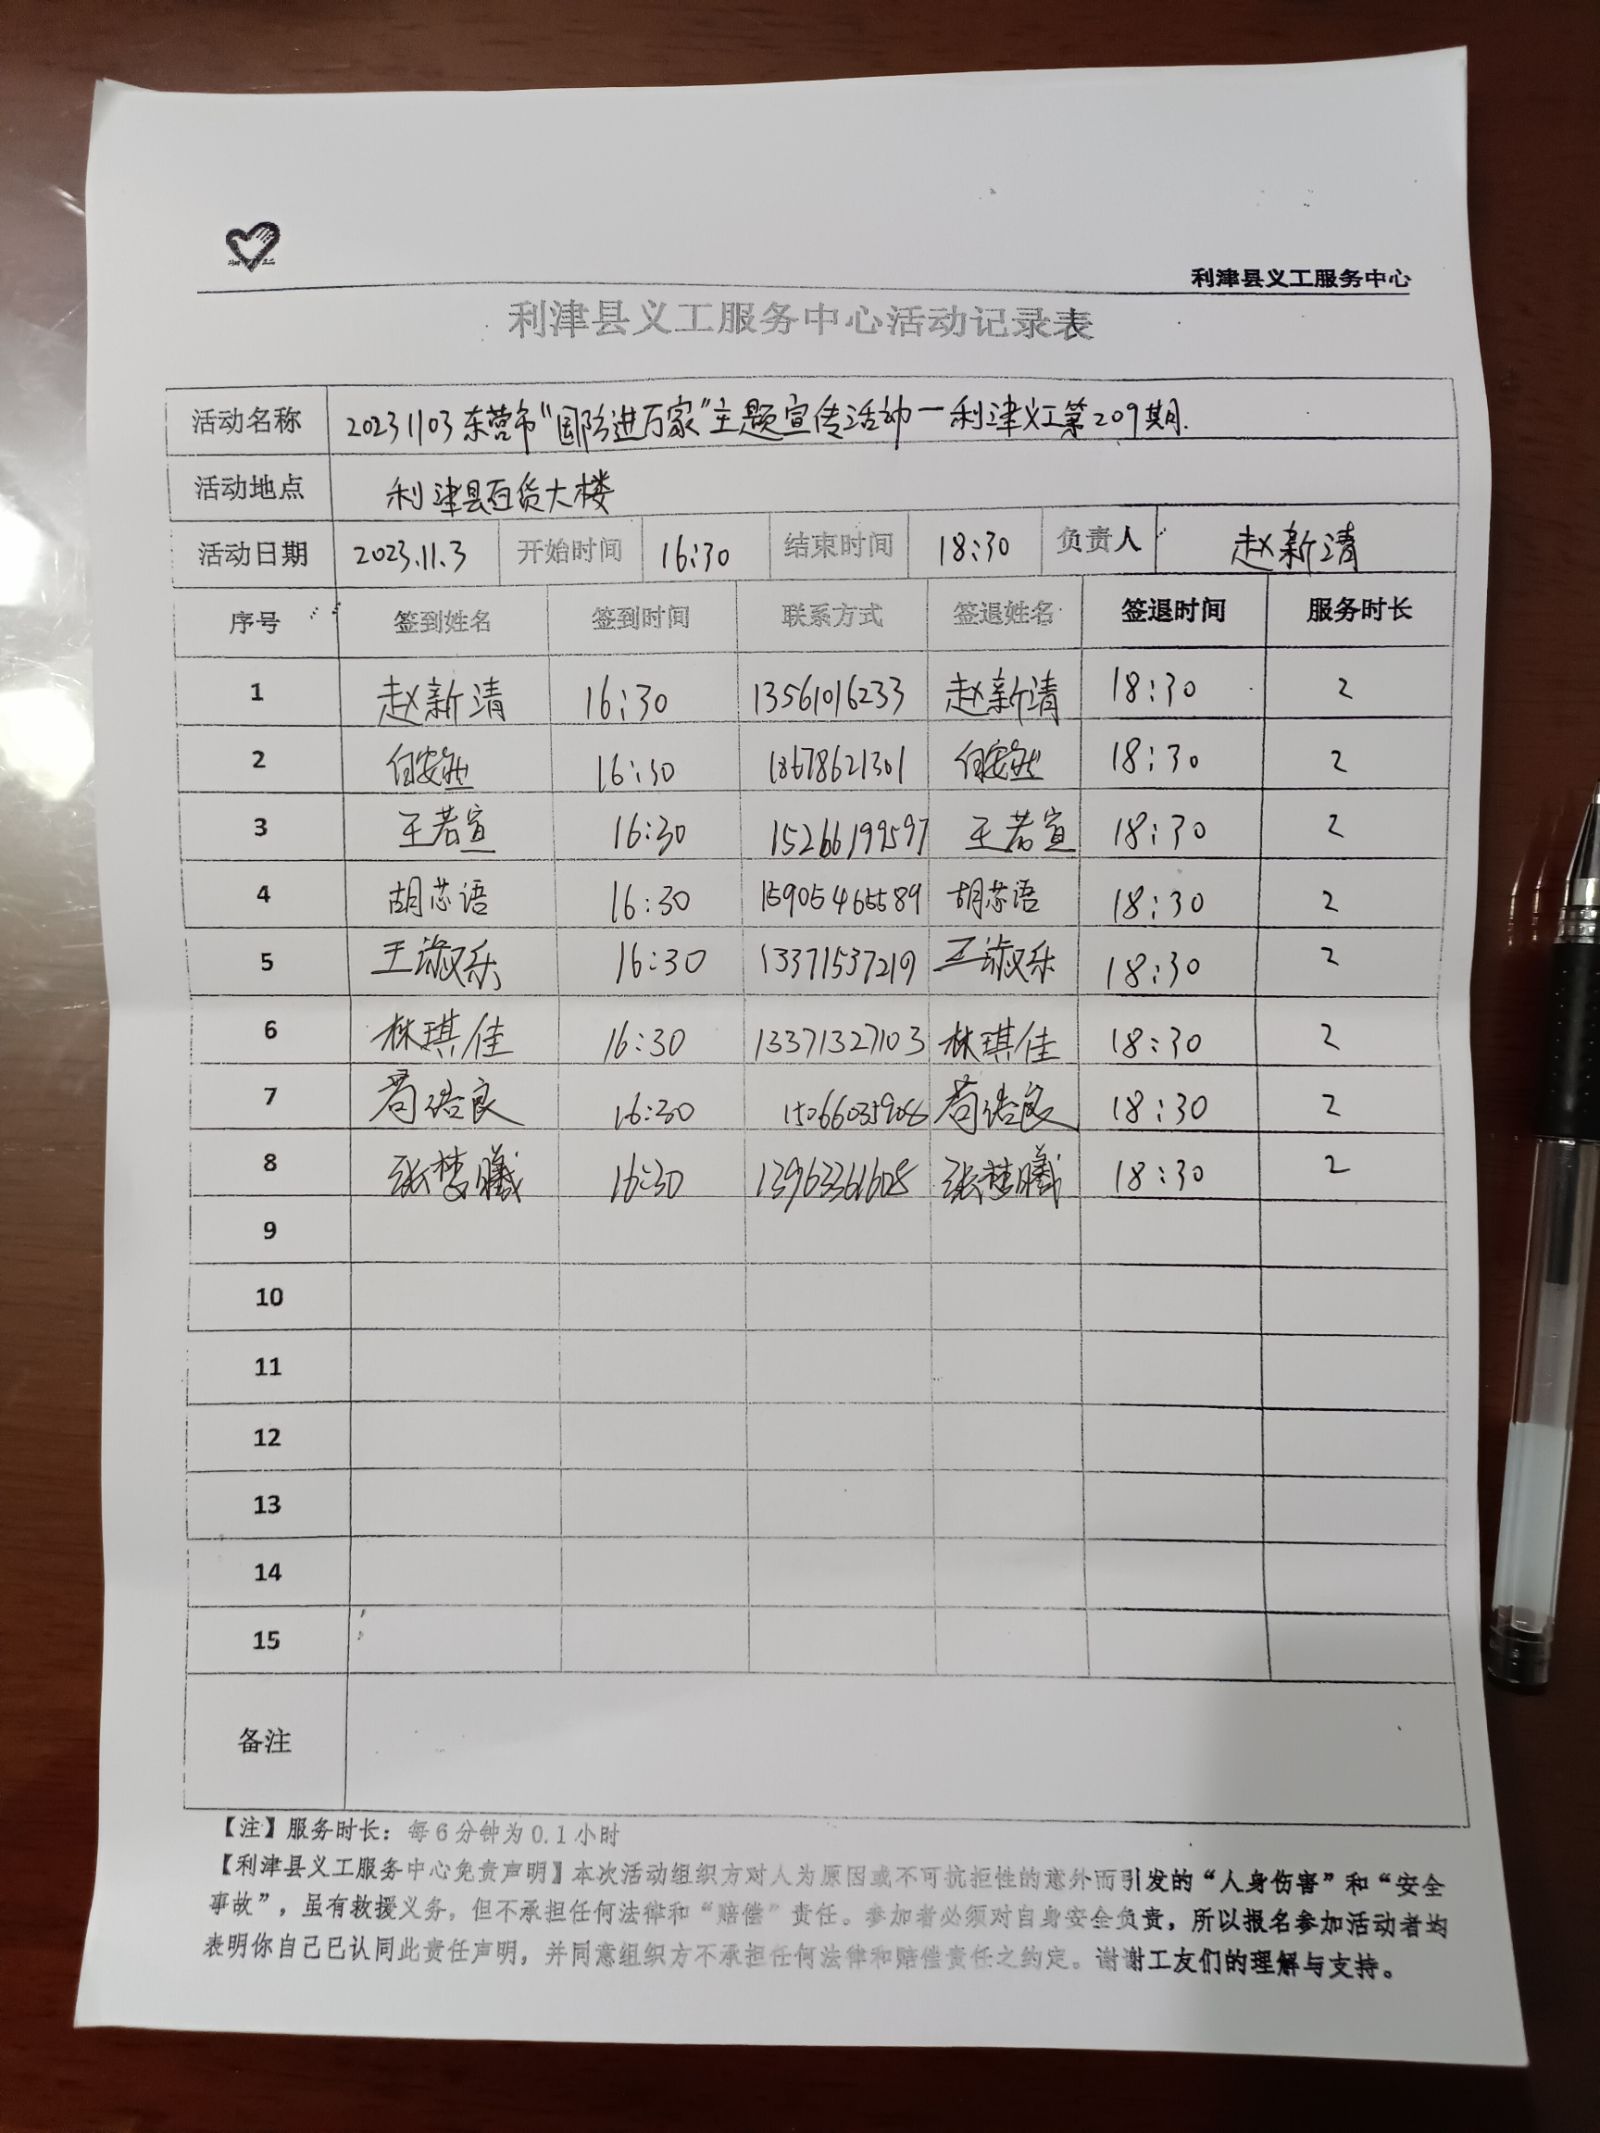 利津县义工服务中心
利津县义工服务中心活动记录表
活动名称 20231103东营市“国防进万家”主题宣传活动—利津义工第209期.
活动地点 利津县百货大楼
活动日期 2023.11.3 开始时间 16:30 结束时间 18:30 负责人 赵新清
序号 签到姓名 签到时间 联系方式 签退姓名 签退时间 服务时长
1 赵新清 16:30 13561016233 赵新清 18:30 2
2 16:30 18678621301 18:30 2
3 王若宣 16:30 15266199597 王若宣 18:30 2
4 胡芯语 16:30 15905465589 胡芯语 18:30 2
5 王淑乐 16:30 13371537219 王淑乐 18:30 2
6 林琪佳 16:30 13371327103 林琪佳 18:30 2
7 16:30 18:30 2
8 张梦曦 16:30 13963361608 张梦曦 18:30 2
9
10
11
12
13
14
15
备注
【注】服务时长：每6分钟为0.1小时
【利津县义工服务中心免责声明】本次活动组织方对人为原因或不可抗拒性的意外而引发的“人身伤害”和“安全
事故”，虽有救援义务，但不承担任何法律和“赔偿”责任。参加者必须对自身安全负责，所以报名参加活动者均
表明你自己已认同此责任声明，并同意组织方不承担任何法律和赔偿责任之约定。谢谢工友们的理解与支持。